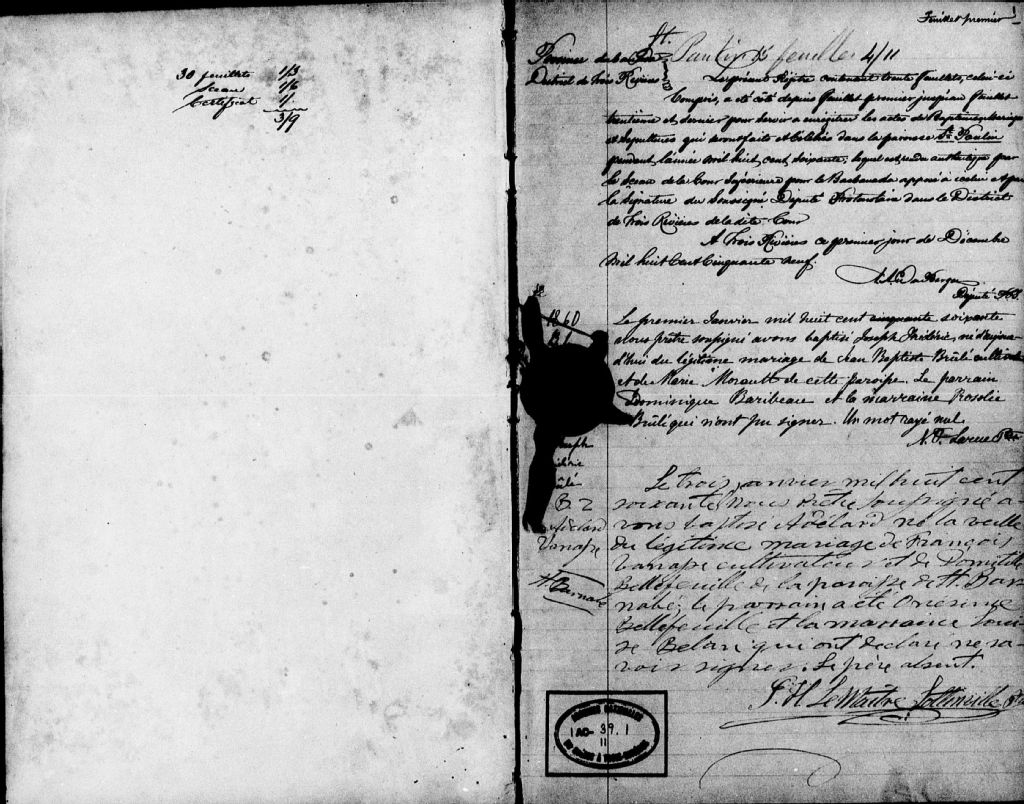 30 feuillets 1/3
Sceau 1/6
Certificat 1/.
3/9
Feuillet premier
St. Paulin feuille 4/11
Province du Bas Can
District de Trois Rivières
Le présent Régître contenant trente feuillets, celui-ci
Compris, a été côté depuis feuillet premier jusqu'au feuillet
trentième et dernier pour servir a enrégitrer les actes de Baptêmes, Mariage
et Sepultures qui seront faits et célébrés dans la paroisse St. Paulin
pendant l'année mil huit cent soixante, lequel est rendu authentique par
le Sceau de la Cour Supérieure pour le Bas Canada apposé à icelui et par
la Signature du Soussigné Député Protonotaire dans le District
de Trois Rivières de la dite Cour
A Trois Rivières ce premier jour de Décembre
Mil huit Cent Cinquante neuf.
Député
1860
B. 1
Joseph
Brûlé
Le premier Janvier mil huit cent cinquante soixante
nous prêtre soussigné avons baptisé Joseph Frédéric, né d'aujour-
d'hui du légitime mariage de Jean Baptiste Brûlé cultivateur
et de Marie Morault de cette paroisse. Le parrain
Dominique Baribeau et la marraine Rosalie
Brûlé qui n'ont pu signer. Un mot rayé nul.
N. F. Larue Ptre
B. 2
Adélard
Vanasse
St Barnabé
Le trois janvier mil huit cent
soixante, nous Prêtre soussigné a-
vons baptisé Adélard né la veille
du légitime mariage de François
Vanasse cultivateur et de Domitille
Bellefeuille de la paroisse de St. Bar-
nabé; le parrain a été Onésime
Bellefeuille et la marraine Loui-
se Belan qui ont déclaré ne sa-
voir signer. Le père absent.
P. H. LeMaître Lottinville Ptre
ARCHIVES NATIONALES
AC- 39.1
11
DU QUÉBEC À TROIS-RIVIÈRES